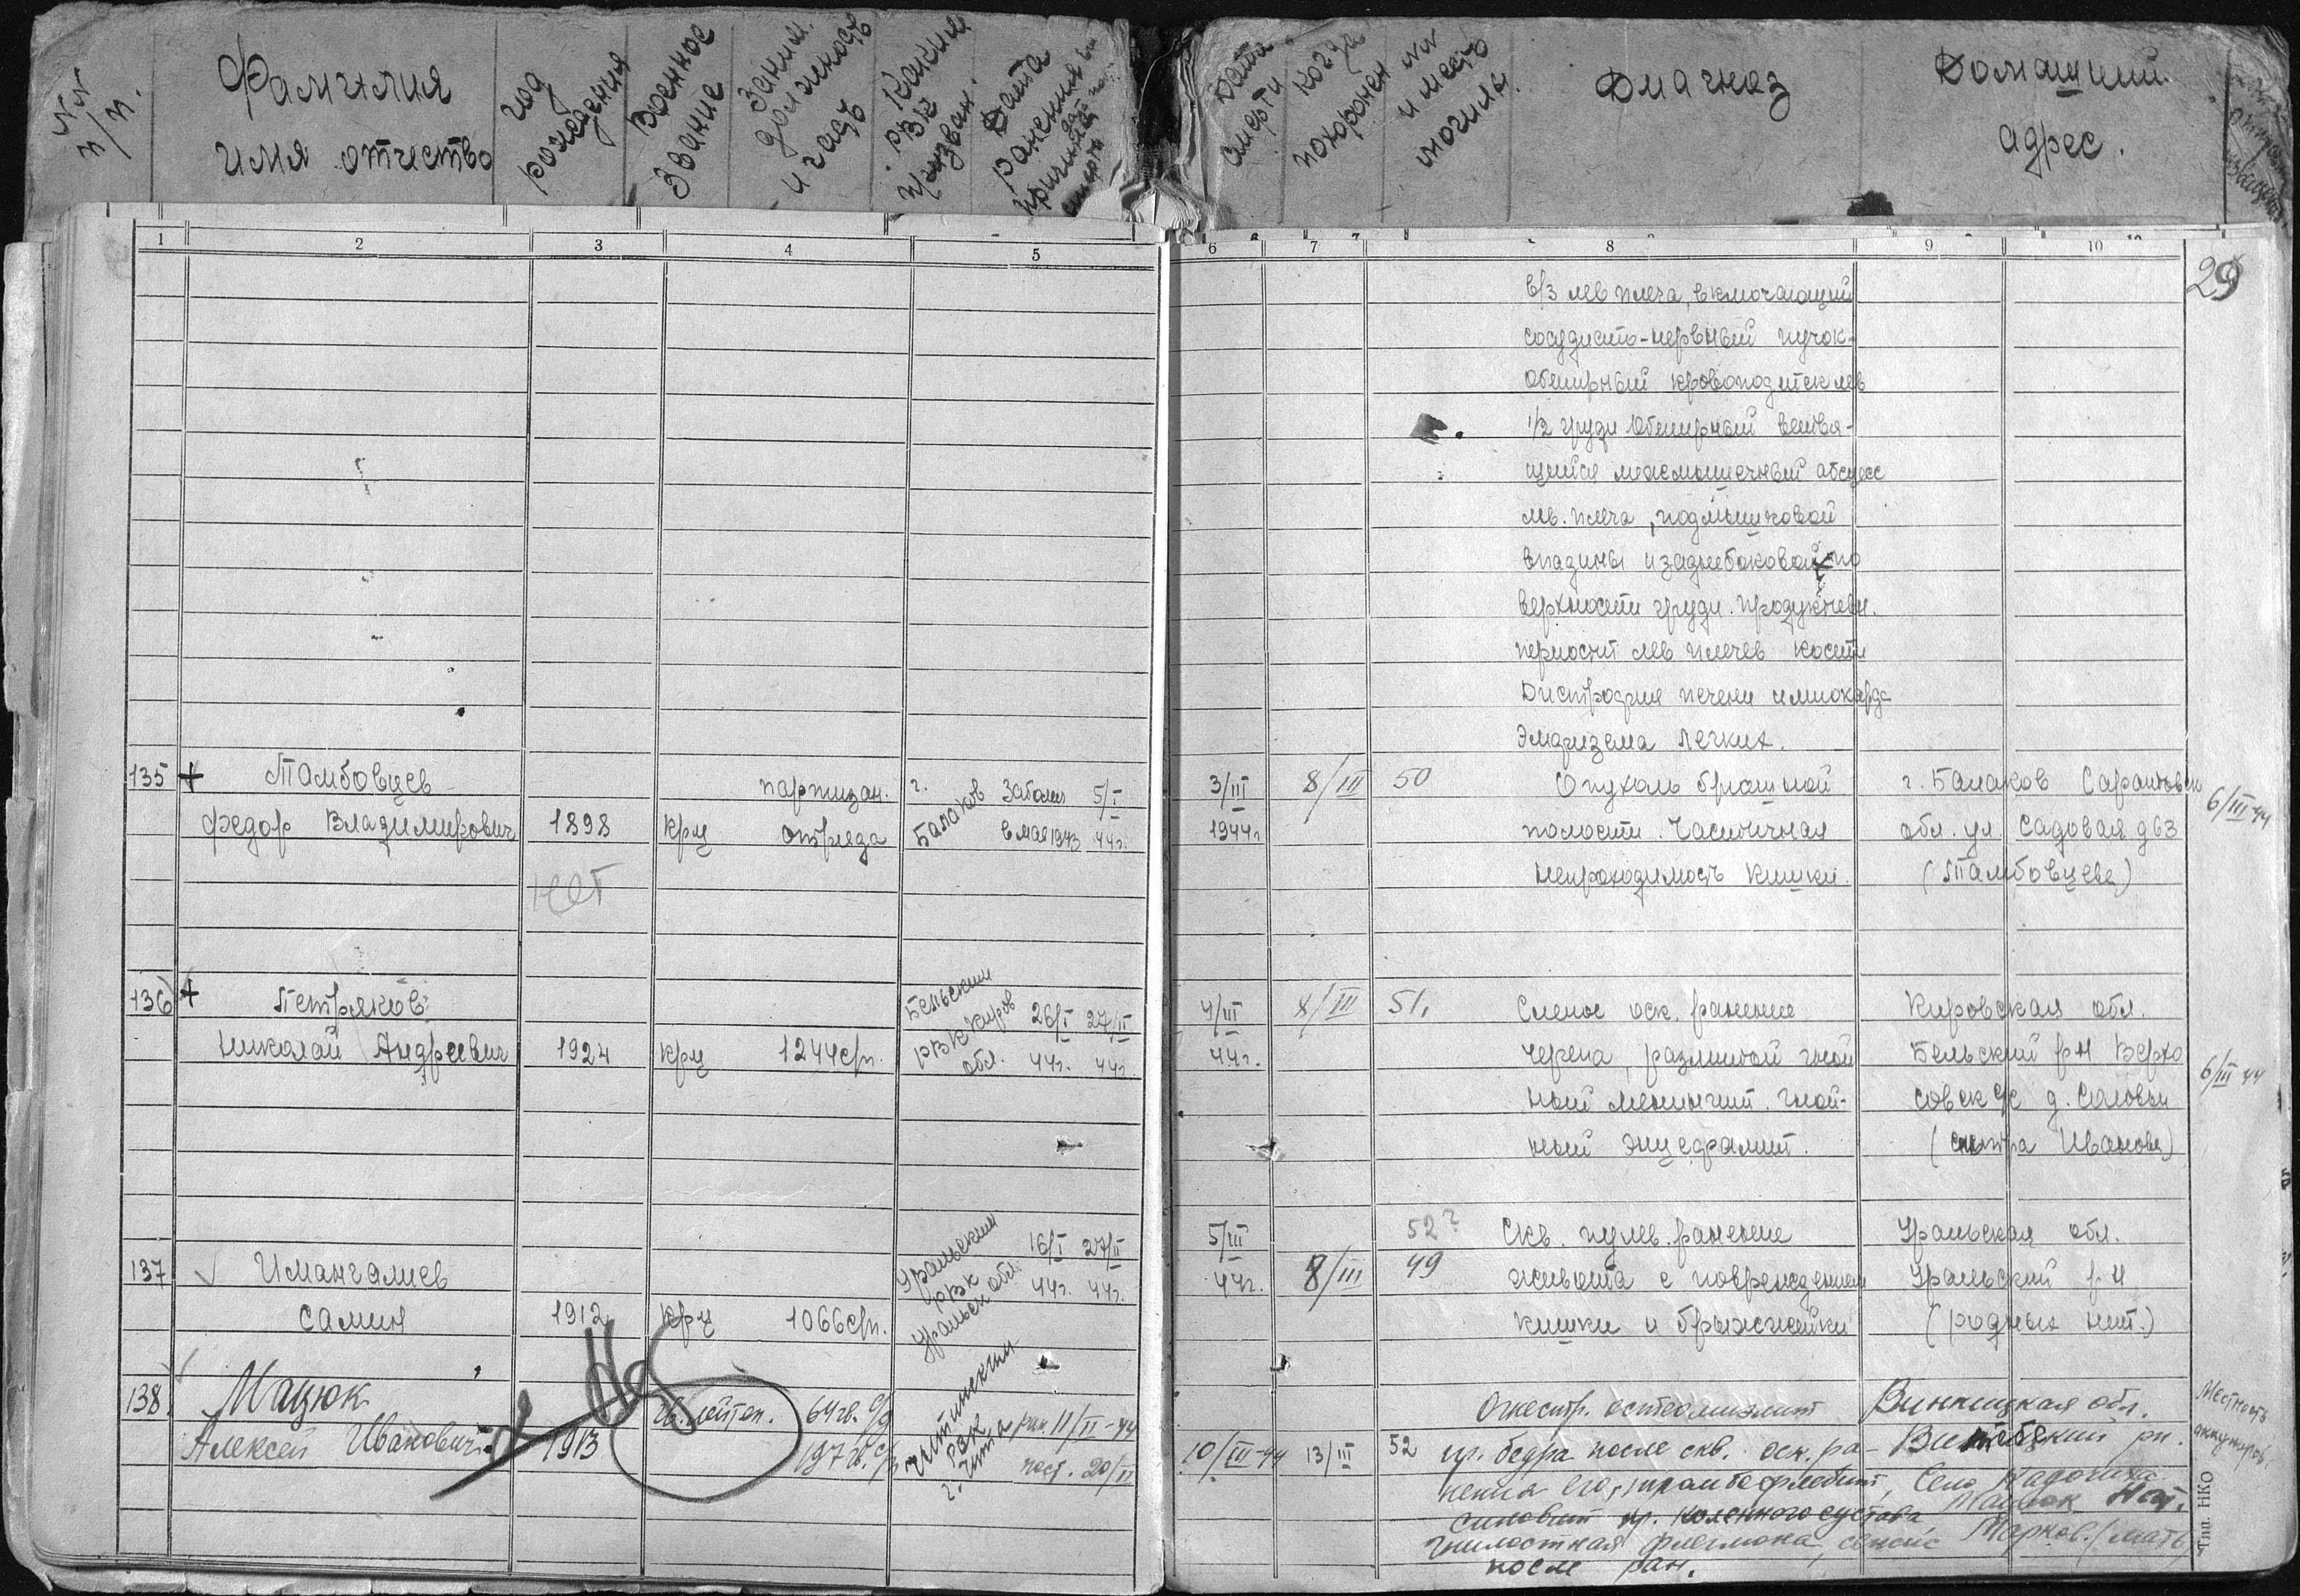 NN п/п.
Фамилия имя отчество
год рождения
Военное звание
Заним. должность и часть
Каким РВК призван.
Дата ранения
Дата смерти
Когда похоронен
NN и место могилы.
Диагноз
Домашний адрес.
1 2 3 4 5 6 7 8 9 10
29
в/3 лев плеча, включающий
сосудисто-нервный пучок-
обширный кровоподтек лев
1/2 груди обширный
щийся межмышечный абсцесс
лев. плеча, подмышковой
впадины и заднебоковой по
верхности груди. продуктивн.
периостит лев плечев кости
Дистрофия печени и миокарда
Эмфизема легких.
135 Тамбовцев партизан. г. Балаков Заболел 5/I 3/III 8/III 50 Опухоль брюшной г. Балаков Саратовск
Федор Владимирович 1898 крц отряда в мае 1943 44г. 1944г полости. Частичная обл. ул Садовая д 63 6/III 44
нет непроходимость кишки. (Тамбовцева)
136 Петряков Бельским 26/I 27/II 4/III 8/III 51. Слепое оск. ранение Кировская обл.
Николай Андреевич 1924 крц 1244 сп. РВК Киров обл. 44г. 44г 44г. черепа, разлитой гной Бельский рн Верхо 6/III 44
ный менингит. гной- совск с/с д. Саловьи
ный энцефалит. (Иванова)
Уральским 16/I 27/II 5/III 52? Скв. пулев. ранение Уральская обл.
137 Имангалиев РВК Уральск обл. 44г. 44г. 44г. 8/III 49 живота с повреждением Уральский р-н
Самин 1912 крц 1066 сп. кишки и брыжжейки (родных нет.)
138. Мацюк гв. лейтен. 64 гв. Читинским рвк г. Чита ран 11/II-44 Огнестр. остеомиэлит Винницкая обл. Местность оккупиров.
Алексей Иванович 1913 197 гв. пост. 20/II 10/III-44 13/III 52 пр. бедра после скв. оск. ра- рн.
нения его, тромбофлебит, Село
синовит пр. коленного сустава Мацюк Нат.
гнилостная флегмона, сепсис Марков. (мать)
после ран.
Тип. НКО